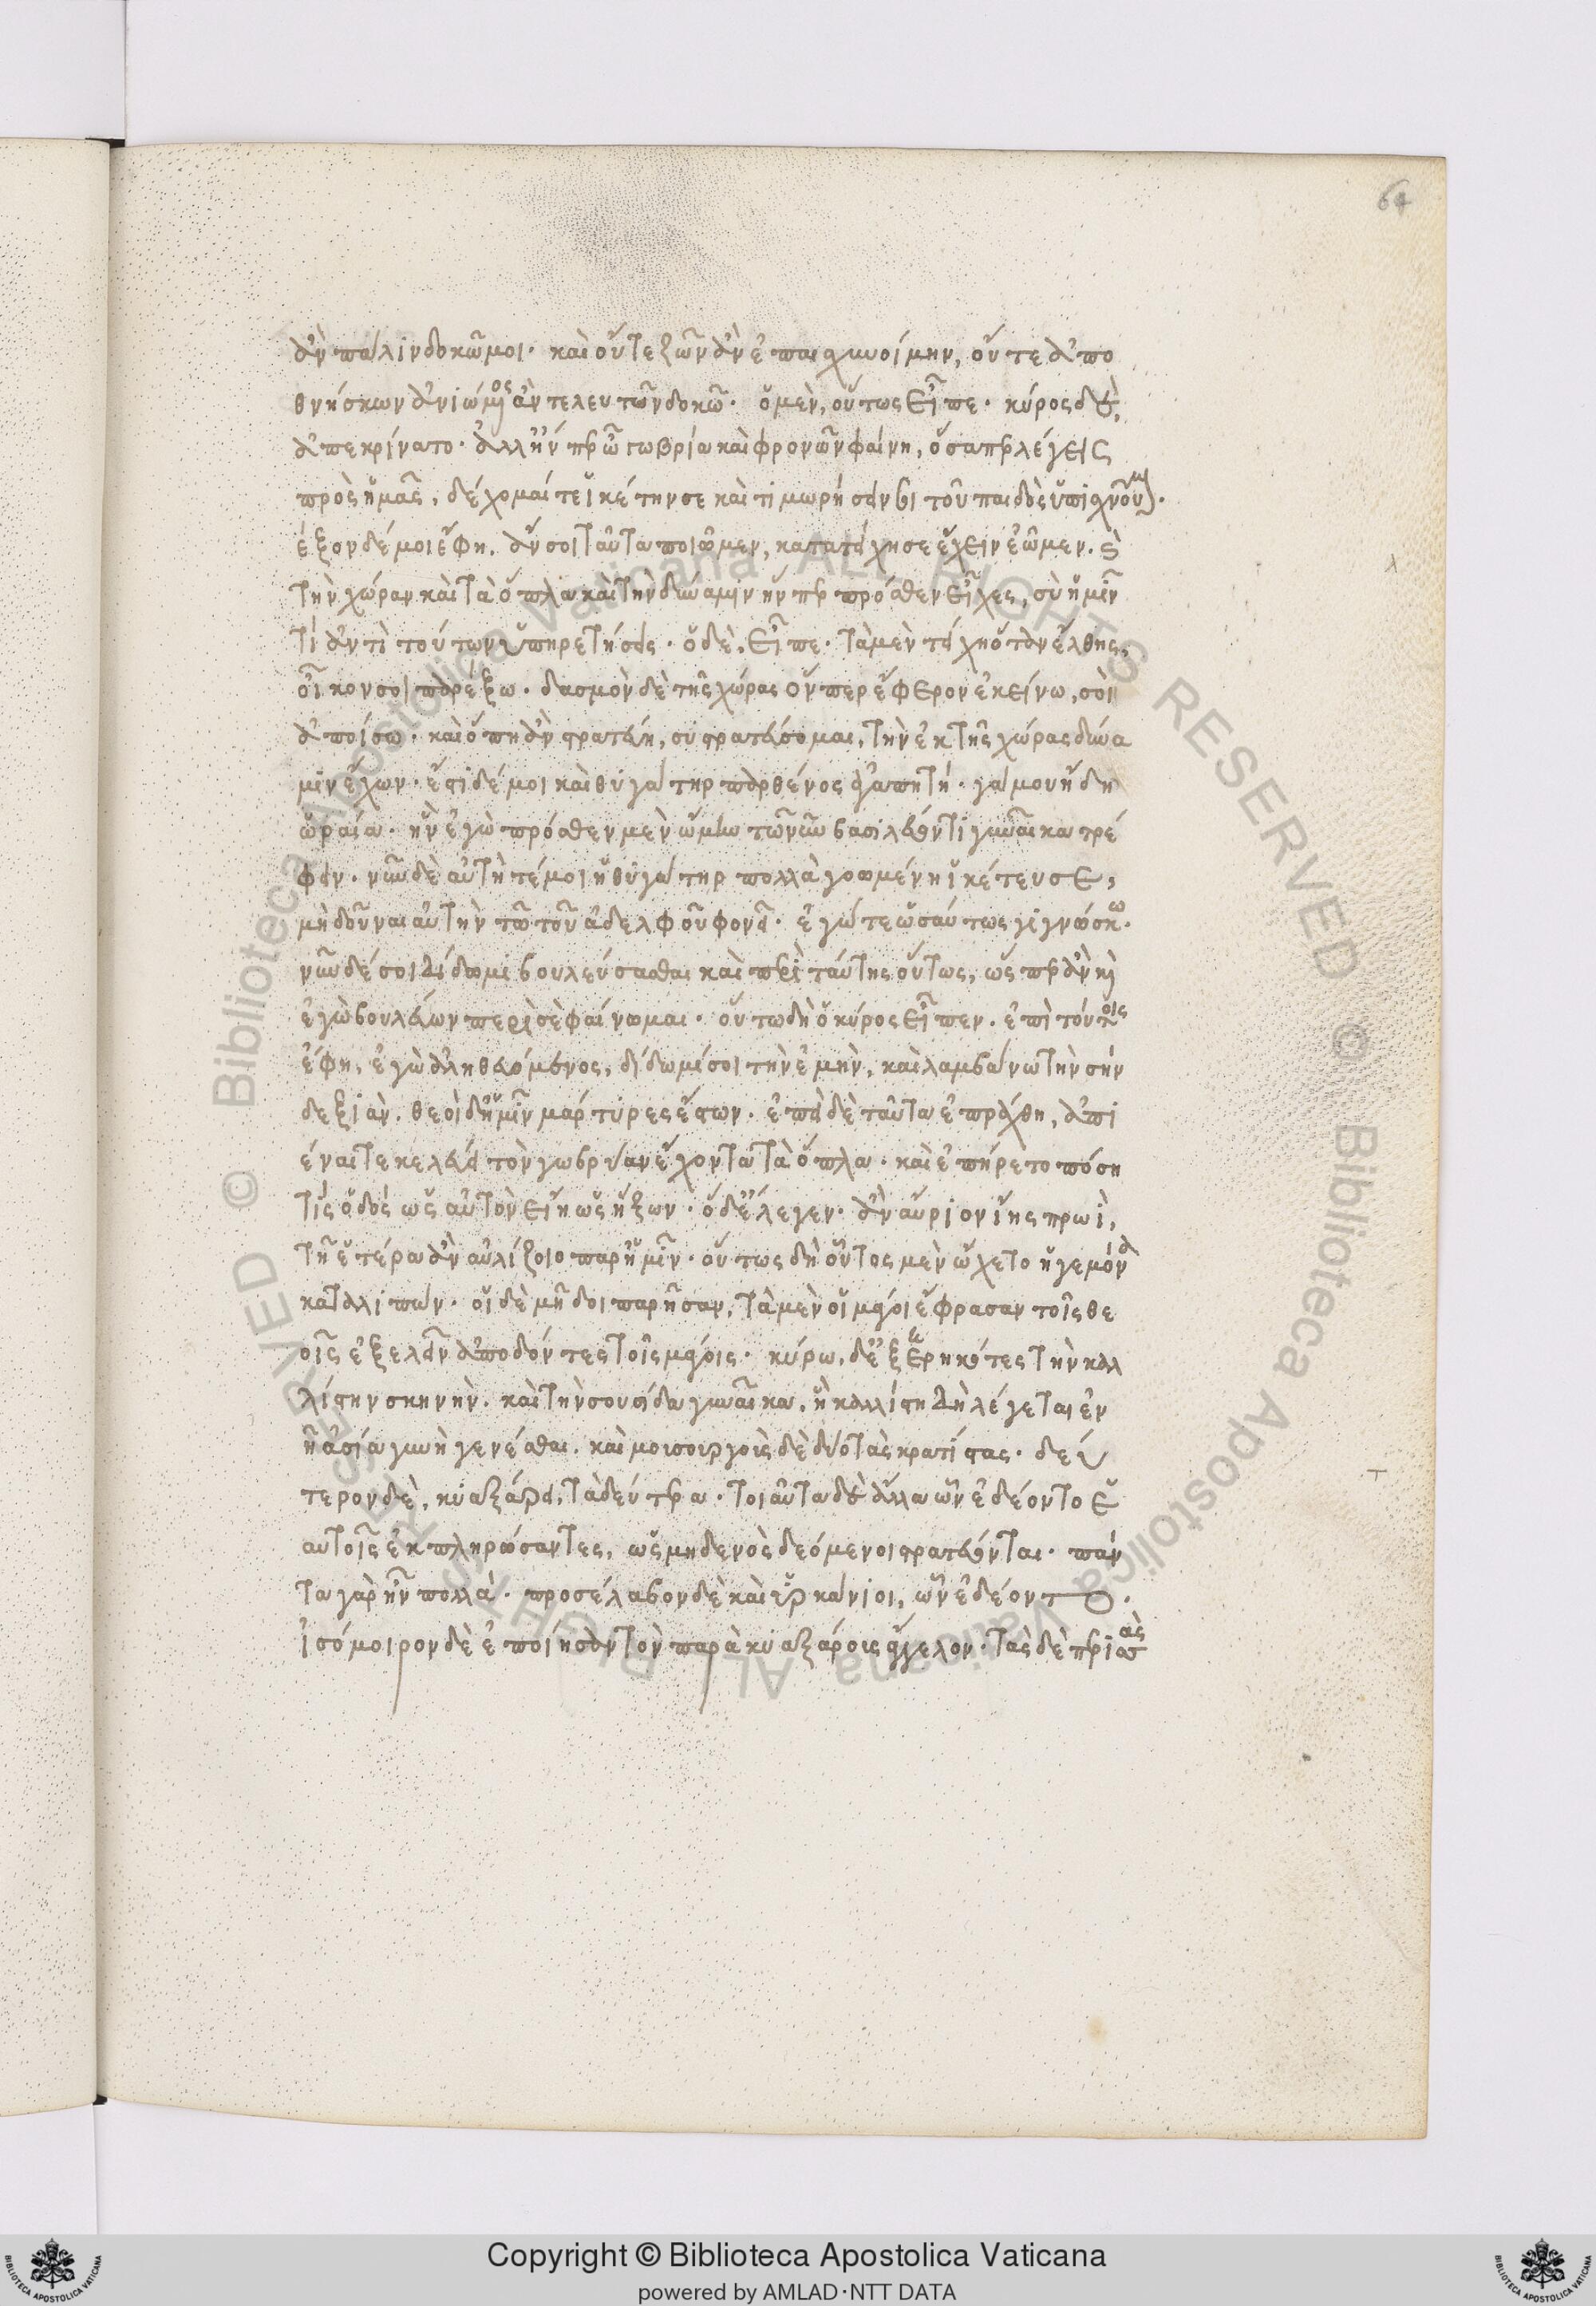 64
ἂν πάλιν δοκῶ μοι· καὶ οὔτε ζῶν ἂν ἐπαισχυνοίμην, οὔτε ἀπο
θνήσκων ἀνιώμενος ἂν τελευτᾶν δοκῶ. ὁ μὲν, οὕτως εἶπε· κύρος δὲ,
ἀπεκρίνατο· ἀλλ' ἢν περ ὦ γωβρύα καὶ φρονῶν φαίνῃ, ὅσαπερ λέγεις
πρὸς ἡμᾶς, δέχομαί τε ἱκέτην σε καὶ τιμωρήσειν σοι τοῦ παιδὸς ὑπισχνοῦμαι.
ἐξον δέ μοι ἔφη, ἄν σοι ταῦτα ποιῶμεν, καὶ τὰ τείχη σε ἔχειν ἐῶμεν, καὶ
τὴν χώραν καὶ τὰ ὅπλα καὶ τὴν δύναμιν ἥνπερ πρόσθεν εἶχες, σὺ ἡμῖν
τί ἀντὶ τούτων ὑπηρετήσεις. ὁ δὲ, εἶπε· τὰ μὲν τείχη ὅταν ἔλθης,
οἶκον σοι παρέξω. δασμὸν δὲ τῆς χώρας ὅνπερ ἔφερον ἐκείνω, σοὶ
ἀποίσω. καὶ ὅπη ἂν στρατεύη, συστρατεύσομαι, τὴν ἐκ τῆς χώρας δύνα
μιν ἔχων. ἔστι δέ μοι καὶ θυγάτηρ παρθένος ἀγαπητή. γάμου ἤδη
ὡραία. ἣν ἐγὼ πρόσθεν μὲν ὤμην τῶ νῦν βασιλεύοντι γυναῖκα τρέ
φειν. νῦν δὲ αὐτή τέ μοι ἡ θυγάτηρ πολλὰ γοωμένη ἱκέτευσε,
μὴ δοῦναι αὐτὴν τῶ τοῦ ἀδελφοῦ φονεῖ. ἐγώ τε ὡσαύτως γιγνώσκω.
νῦν δέ σοι δίδωμι βουλεύσασθαι καὶ περὶ ταύτης οὕτως, ὥσπερ ἂν καὶ
ἐγὼ βουλεύων περὶ σὲ φαίνωμαι. οὕτω δὴ ὁ κύρος εἶπεν. ἐπὶ τούτοις
ἔφη, ἐγὼ ἀληθευόμενος, δίδωμί σοι τὴν ἐμὴν, καὶ λαμβάνω τὴν σὴν
δεξιάν. θεοὶ δ' ἡμῖν μάρτυρες ἔστων. ἐπεὶ δὲ ταῦτα ἐπράχθη, ἀπι
έναι τε κελεύει τὸν γωβρύαν ἔχοντα τὰ ὅπλα. καὶ ἐπήρετο πόση
τίς ὁδός ὡς αὐτὸν εἴη ὡς ἥξων. ὁ δ' ἔλεγεν· ἂν αὔριον ἴης πρωὶ,
τῆ ἑτέρα ἂν αὐλίζοιο παρ' ἡμῖν. οὕτως δὴ οὗτος μὲν ὤχετο ἡγεμόνα
καταλιπών. οἱ δὲ μῆδοι παρῆσαν, τὰ μὲν οἱ μάγοι ἔφρασαν τοῖς θε
οῖς ἐξελεῖν ἀποδόντες τοῖς μάγοις. κύρω, δ' ἐξηρηκότες τὴν καλ
λίστην σκηνὴν. καὶ τὴν σουσίδα γυναῖκα, ἣ καλλίστη δὴ λέγεται ἐν
τῆ ἀσία γυνὴ γενέσθαι. καὶ μουσουργοὺς δὲ δύο τὰς κρατίστας. δεύ
τερον δὲ, κυαξάρει, τὰ δεύτερα. τοιαῦτα δὲ ἄλλα ὧν ἐδέοντο ἑ
αυτοῖς ἐκπληρώσαντες, ὡς μηδενὸς δεόμενοι στρατεύονται. πάν
τα γὰρ ἦν πολλά. προσέλαβον δὲ καὶ ὑρκάνιοι, ὧν ἐδέοντο.
ἰσόμοιρον δὲ ἐποίησαν τὸν παρὰ κυαξάροις ἄγγελον. τὰς δὲ περισσὰς